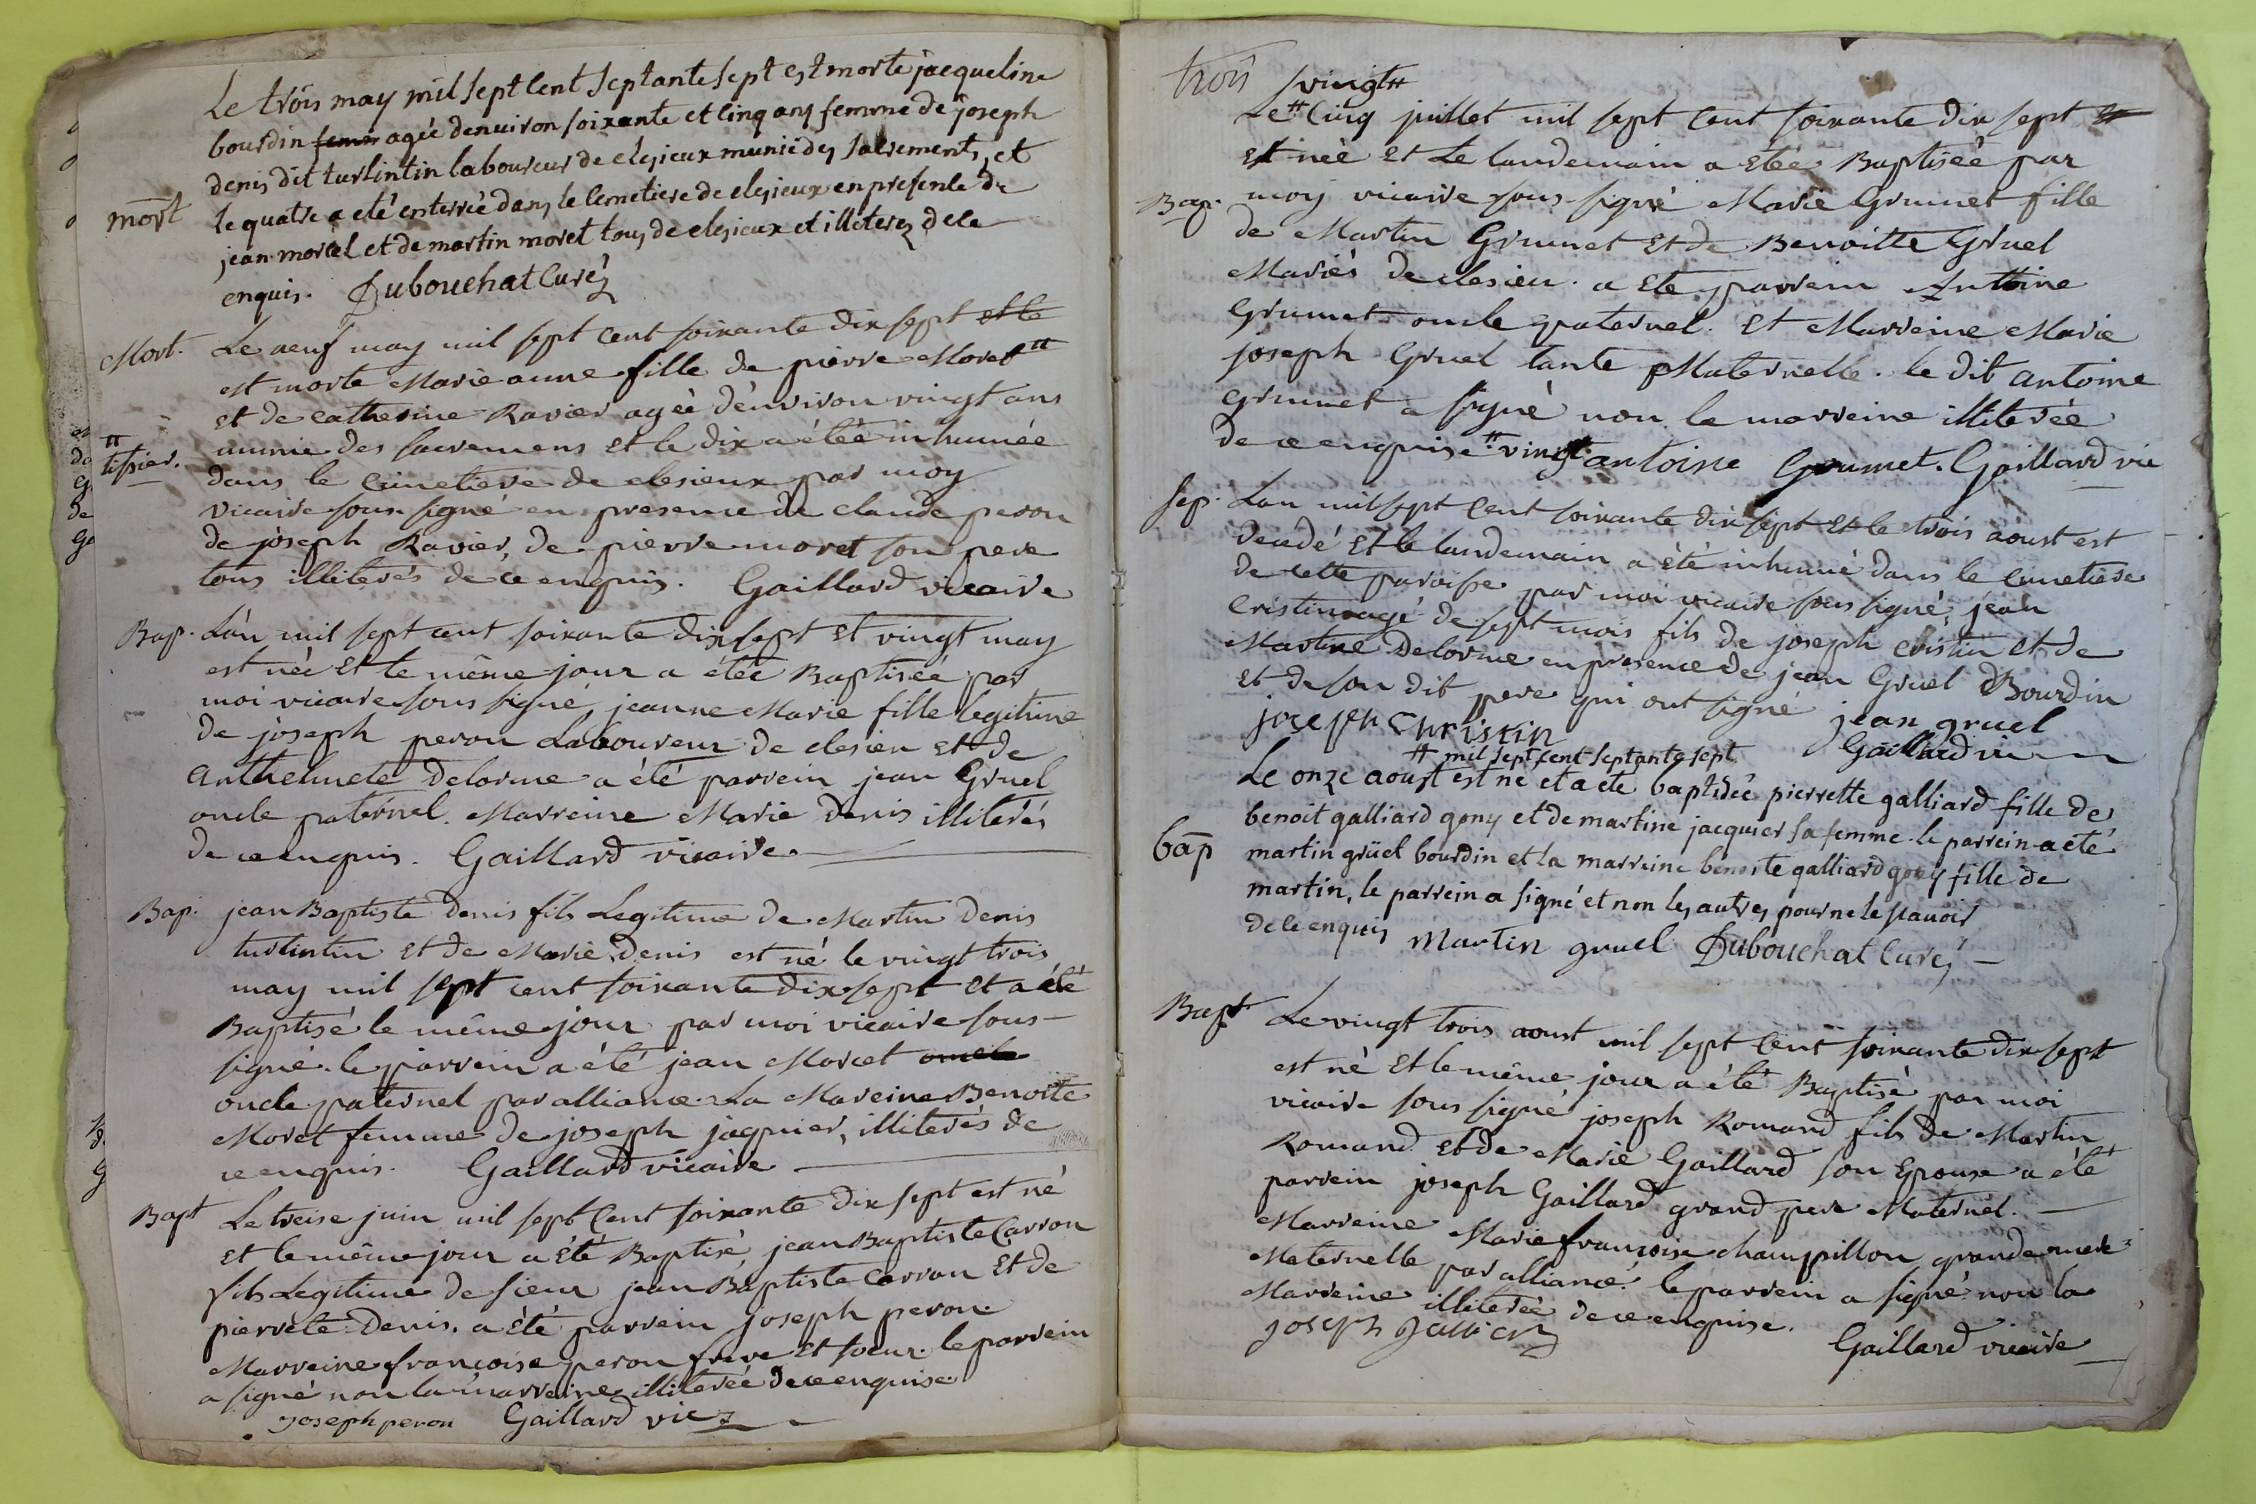 Le trois may mil sept cent septante sept est morte jacqueline
bourdin femme agée denuiron soixante et cinq ans femme de joseph
denis dit turlintin laboureur de clesieux munie des sacrements, et
mort
le quatre a eté enterrée dans le cemetiere de clesieux en presence de
jean morcel et de martin moret tous de clesieux et illiterez de ce
enquis. Dubouchat Curé
Mort.
Le neuf may mil sept cent soixante dix sept et le
est morte Marie anne fille de pierre Moret #
et de catherine Ravier agéé d'environ vingt ans
munie des sacremens et le dix a étéé inhumée
# tissier.
dans le cimetiere de clesieux par moy
vicaire sous signé en presence de claude peron
de joseph Ravier, de pierre moret son pere
tous illiterés de ce enquis. Gaillard vicaire
Bap.
L'àn mil sept cent soixante dix sept et vingt may
est néé Et le même jour a étéé Baptiséé par
moi vicaire sous signé, jeanne Marie fille legitime
de joseph peron Laboureur de clesieu et de
Anthelmete Delorme a été parrein jean Gruel
oncle paternel. Marreine Marie Denis illiterés
de ce enquis. Gaillard vicaire
Bap.
jean Baptiste Denis fils Legitime de Martin Denis
turlintin et de Marie Denis est né le vingt trois
may mil sept cent soixante dix sept et a été
Baptisé le même jour par moi vicaire sous
signé. le parrein a été jean Morcet oncle
oncle paternel par alliance. La Mareine Benoite
Moret femme de joseph jaquier, illiterés de
ce enquis. Gaillard vicaire
Bapt
Le treise juin mil sept cent soixante dix sept est né
et le même jour a été Baptisé, jean Baptiste Carron
fils Legitime de sieur jean Baptiste Carron Et de
pierrete Denis. a été parrein joseph peron
Marreine françoise peron frere et soeur. le parrein
a signé non la marreine illiteréé de ce enquise
joseph peron Gaillard vic
trois
# vingt #
Le # Cinq juillet mil sept Cent soixante dix sept #
est néé et Le landemain a étéé Baptiséé par
Bap.
moy vicaire sous-signé Marie Grumet fille
de Martin Grumet et de Benoitte Gruel
Mariés de clesieu. a Eté parrein Anttoine
Grumet oncle paternel. Et Marreine Marie
joseph Gruel tante Maternelle. le dit antoine
Grumet a signé non la marreine illiterée
de ce enquise # vingt antoine Grumet. Gaillard vic
sep.
Lan mil sept Cent soixante dix sept et le trois aoust est
decedé et le landemain a été inhumé dans le cimetiere
de cette paroisse par moi vicaire sous signé, jean
Cristin agé de sept mois fils de joseph cristin et de
Martine Delorme en presence de jean Gruel Bourdin
et de son dit pere qui ont signé jean gruel
joseph Christin Gaillard vic
# mil sept cent septante sept
Le onze aoust # est né et a eté baptisée pierrette galliard fille de
benoit galliard gony et de martine jacquier sa femme. le parrein a eté
bap
martin grüel bourdin et la marreine benoite galliard gony fille de
martin, le parrein a signé et non les autres pour ne le scauoir
de ce enquis Martin gruel Dubouchat Curé
Bapt
Le vingt trois aoust mil sept Cent soixante dix sept
est né et le même jour a été Baptisé par moi
vicaire sous signé joseph Romand fils de Martin
Romand et de Marie Gaillard son Epouse a été
parrein joseph Gaillard grand pere Maternel.
Marreine Marie françoise champillon grande mere
Maternelle par alliance. le parrein a signé non la
Marreine illiterée de ce enquise.
joseph Gaillard vicaire